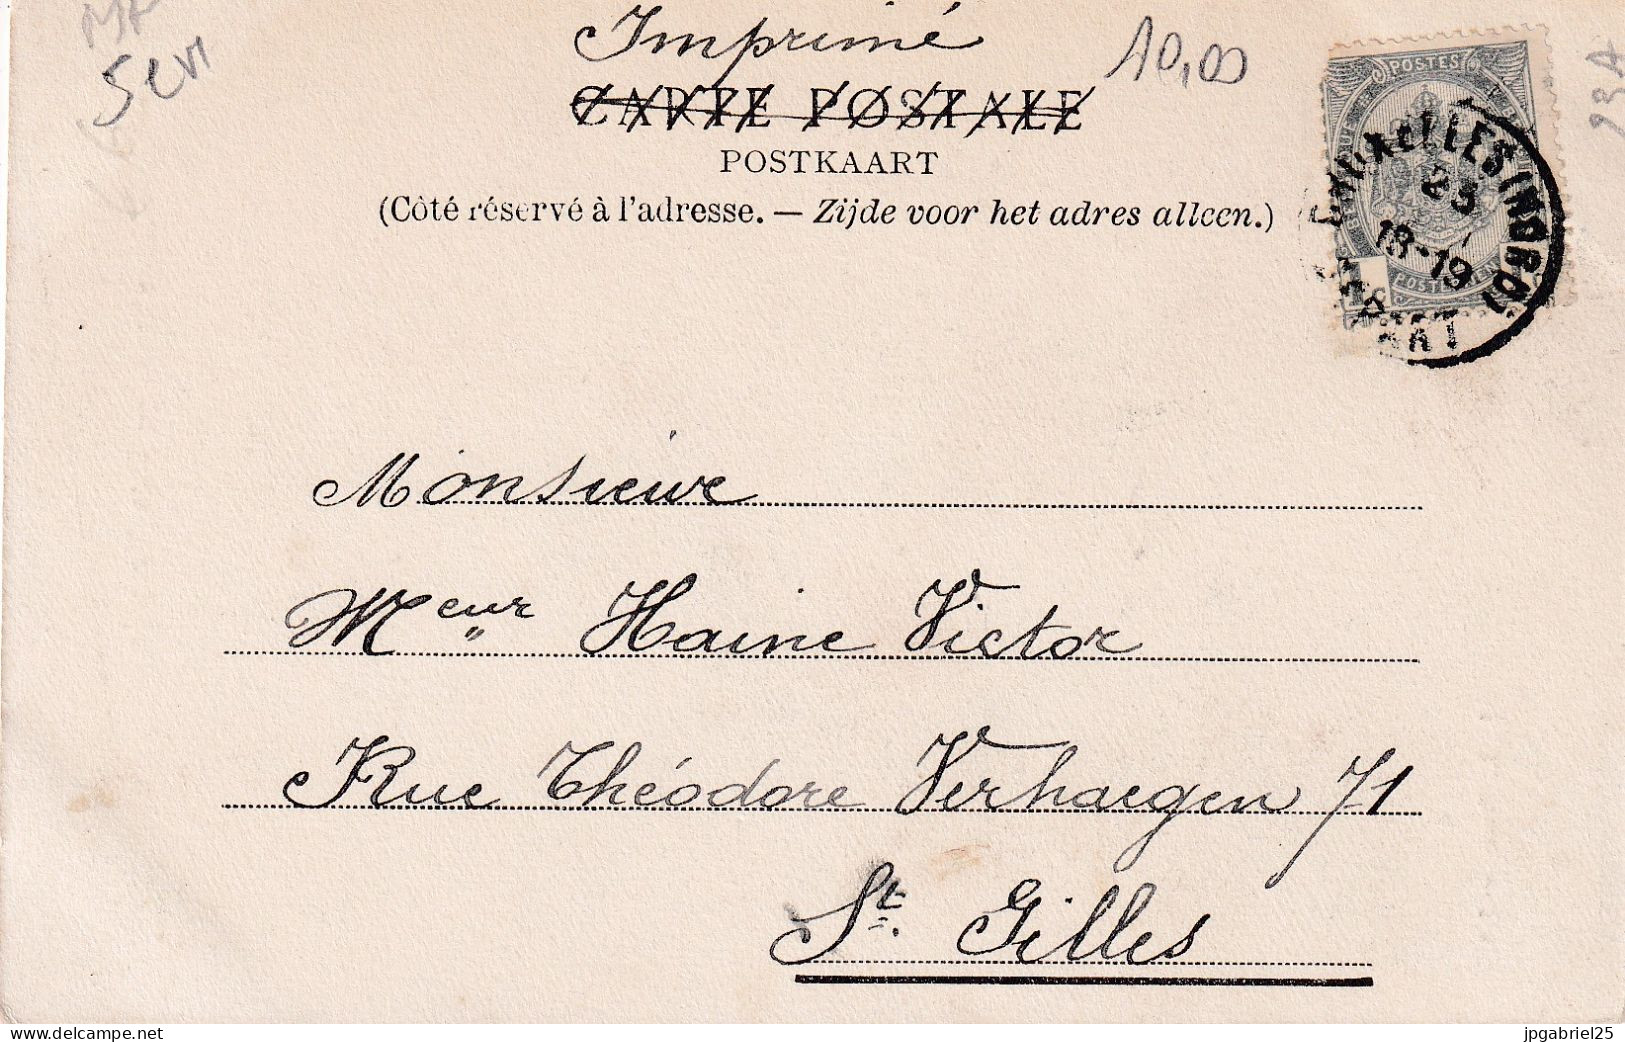 Imprimé
10,00
CARTE POSTALE
POSTKAART
(Côté réservé à l'adresse. — Zijde voor het adres alleen.)
POSTES
BRUXELLES (NORD)
23
18-19
DEPART
Monsieur
Mr eur Haine Victor
Rue Théodore Verhaegen 71
St. Gilles
www.delcampe.net
jpgabriel25